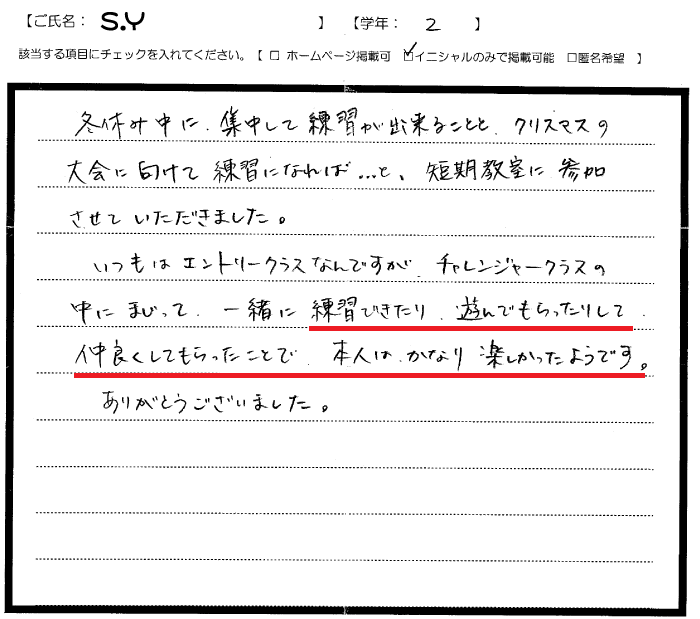 【ご氏名： S.Y 】 【学年： 2 】
該当する項目にチェックを入れてください。【 □ ホームページ掲載可 ☑イニシャルのみで掲載可能 □匿名希望 】
冬休み中に、集中して練習が出来ることと、クリスマスの
大会に向けて練習になれば…と、短期教室に参加
させていただきました。
いつもはエントリークラスなんですが、チャレンジャークラスの
中にまじって、一緒に練習できたり、遊んでもらったりして、
仲良くしてもらったことで、本人は、かなり楽しかったようです。
ありがとうございました。